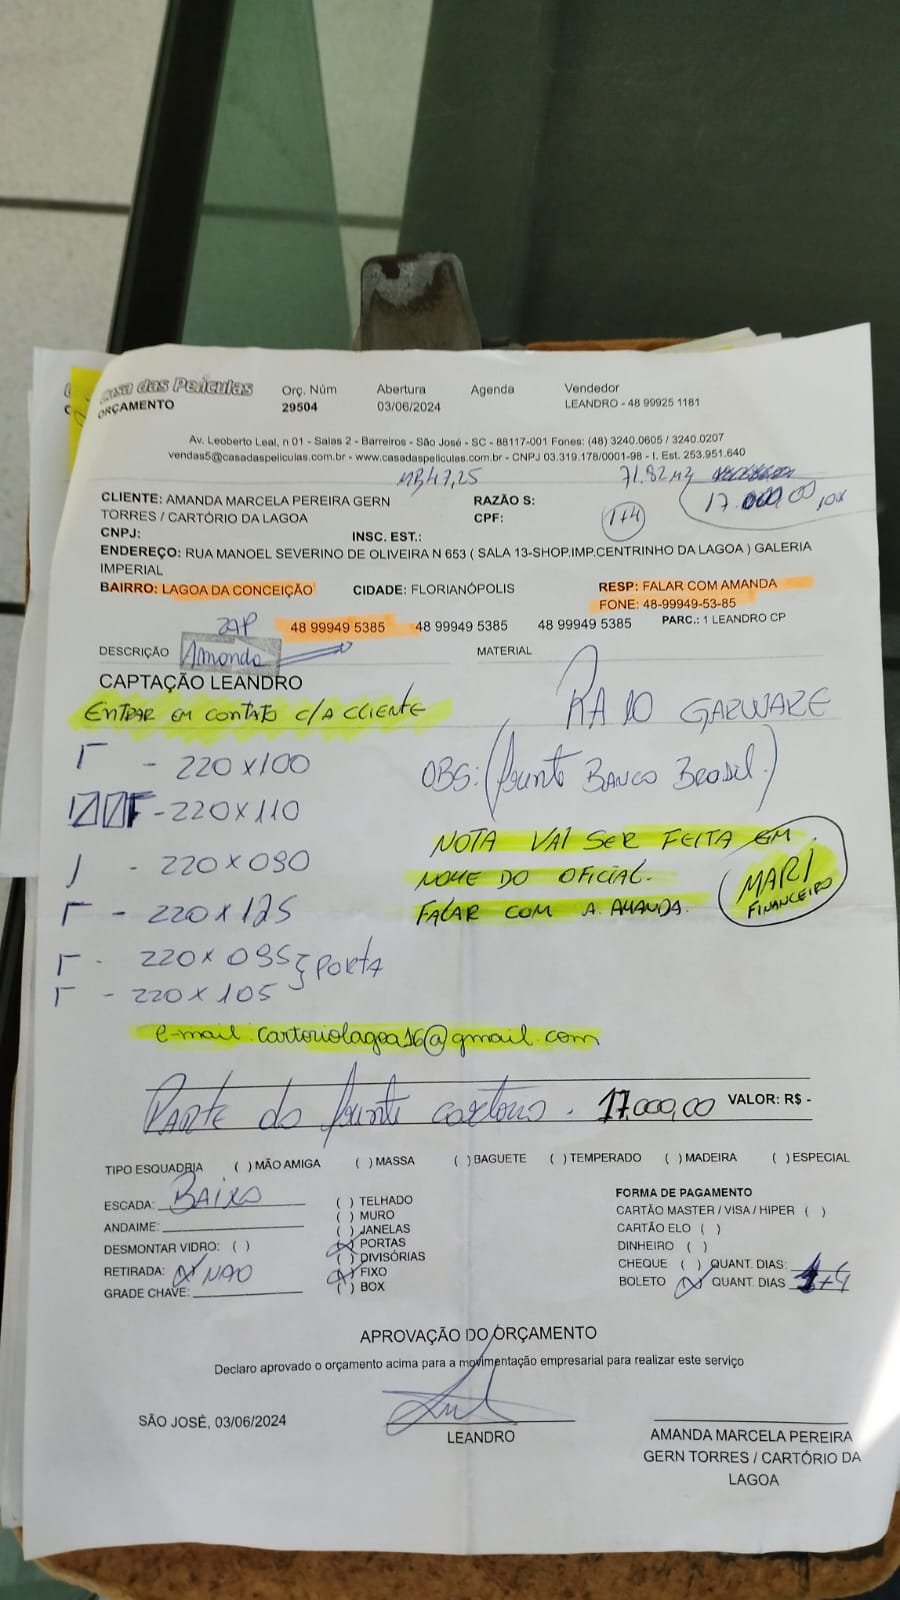 Casa das Películas
ORÇAMENTO
Orç. Núm
29504
Abertura
03/06/2024
Agenda
Vendedor
LEANDRO - 48 99925 1181
Av. Leoberto Leal, n 01 - Salas 2 - Barreiros - São José - SC - 88117-001 Fones: (48) 3240.0605 / 3240.0207
vendas5@casadaspeliculas.com.br - www.casadaspeliculas.com.br - CNPJ 03.319.178/0001-98 - I. Est. 253.951.640
47,25 71.82 M2
17.000,00
CLIENTE: AMANDA MARCELA PEREIRA GERN
TORRES / CARTÓRIO DA LAGOA
RAZÃO S:
CPF:
1+4
CNPJ:
INSC. EST.:
ENDEREÇO: RUA MANOEL SEVERINO DE OLIVEIRA N 653 ( SALA 13-SHOP.IMP.CENTRINHO DA LAGOA ) GALERIA
IMPERIAL
BAIRRO: LAGOA DA CONCEIÇÃO CIDADE: FLORIANÓPOLIS RESP: FALAR COM AMANDA
FONE: 48-99949-53-85
ZAP 48 99949 5385 48 99949 5385 48 99949 5385 PARC.: 1 LEANDRO CP
DESCRIÇÃO Amanda MATERIAL
CAPTAÇÃO LEANDRO
ENTRAR EM CONTATO C/A CLIENTE
RA 10 GARWARE
- 220 x 100
OBS: (Junto BANCO BRASIL)
- 220 x 110
NOTA VAI SER FEITA EM
- 220 x 090
NOME DO OFICIAL.
MARI
FINANCEIRO
- 220 x 125
FALAR COM A AMANDA.
- 220 x 095 } PORTA
- 220 x 105
e-mail: cartoriolagoa16@gmail.com
PARTE do junto cartorio - 17.000,00 VALOR: R$ -
TIPO ESQUADRIA ( ) MÃO AMIGA ( ) MASSA ( ) BAGUETE ( ) TEMPERADO ( ) MADEIRA ( ) ESPECIAL
ESCADA: BAIXO
ANDAIME:
DESMONTAR VIDRO: ( )
RETIRADA: (X) NÃO
GRADE CHAVE:
( ) TELHADO
( ) MURO
( ) JANELAS
(X) PORTAS
( ) DIVISÓRIAS
(X) FIXO
( ) BOX
FORMA DE PAGAMENTO
CARTÃO MASTER / VISA / HIPER ( )
CARTÃO ELO ( )
DINHEIRO ( )
CHEQUE ( ) QUANT. DIAS:
BOLETO (X) QUANT. DIAS 1+4
APROVAÇÃO DO ORÇAMENTO
Declaro aprovado o orçamento acima para a movimentação empresarial para realizar este serviço
SÃO JOSÉ, 03/06/2024
LEANDRO
AMANDA MARCELA PEREIRA
GERN TORRES / CARTÓRIO DA
LAGOA